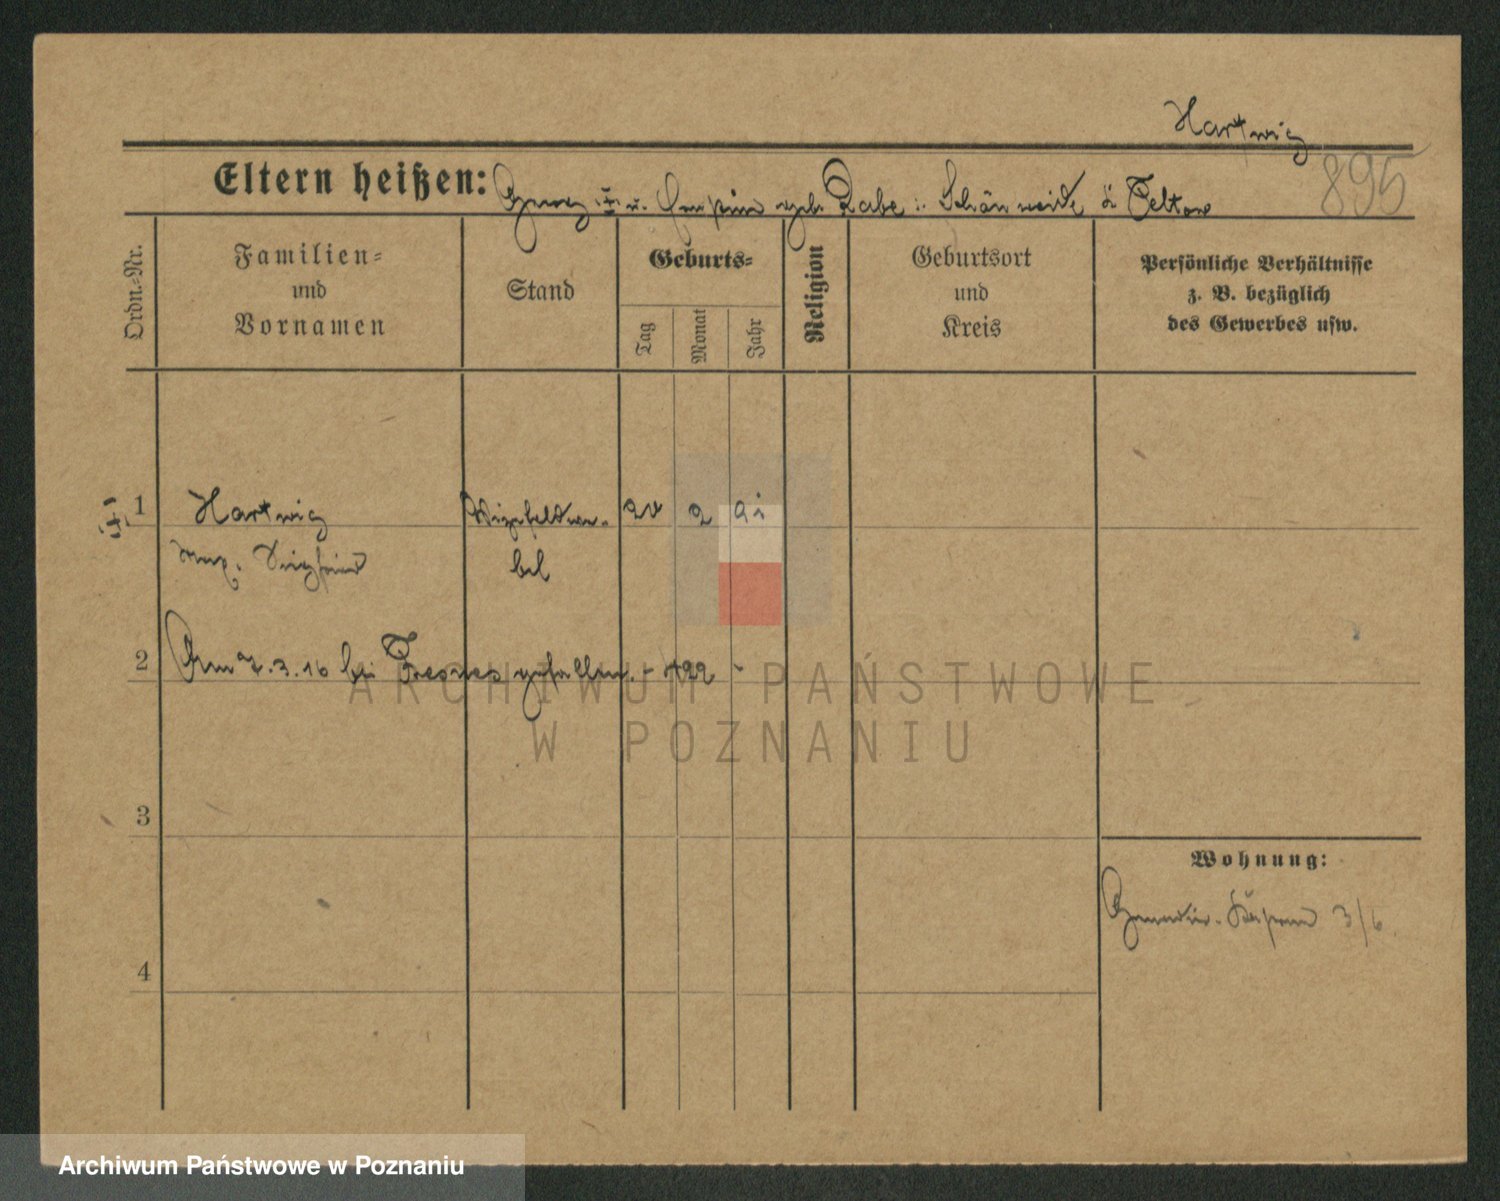 Hartwig
Eltern heißen: Georg † u. geb. Rabe i. Schönweide Teltow
895
Ordn.-Nr.
Familien-
und
Vornamen
Stand
Geburts-
Tag
Monat
Jahr
Religion
Geburtsort
und
Kreis
Persönliche Verhältnisse
z. B. bezüglich
des Gewerbes usw.
(†) 1 Hartwig Vizefeldwe- 20 2 91
Max. Siegfried bel
2 Am 7.3.16 bei Fresnes gefallen. - 422 -
3
4
Wohnung:
Grenadier-Kaserne 3/6.
ARCHIWUM PAŃSTWOWE
W POZNANIU
Archiwum Państwowe w Poznaniu